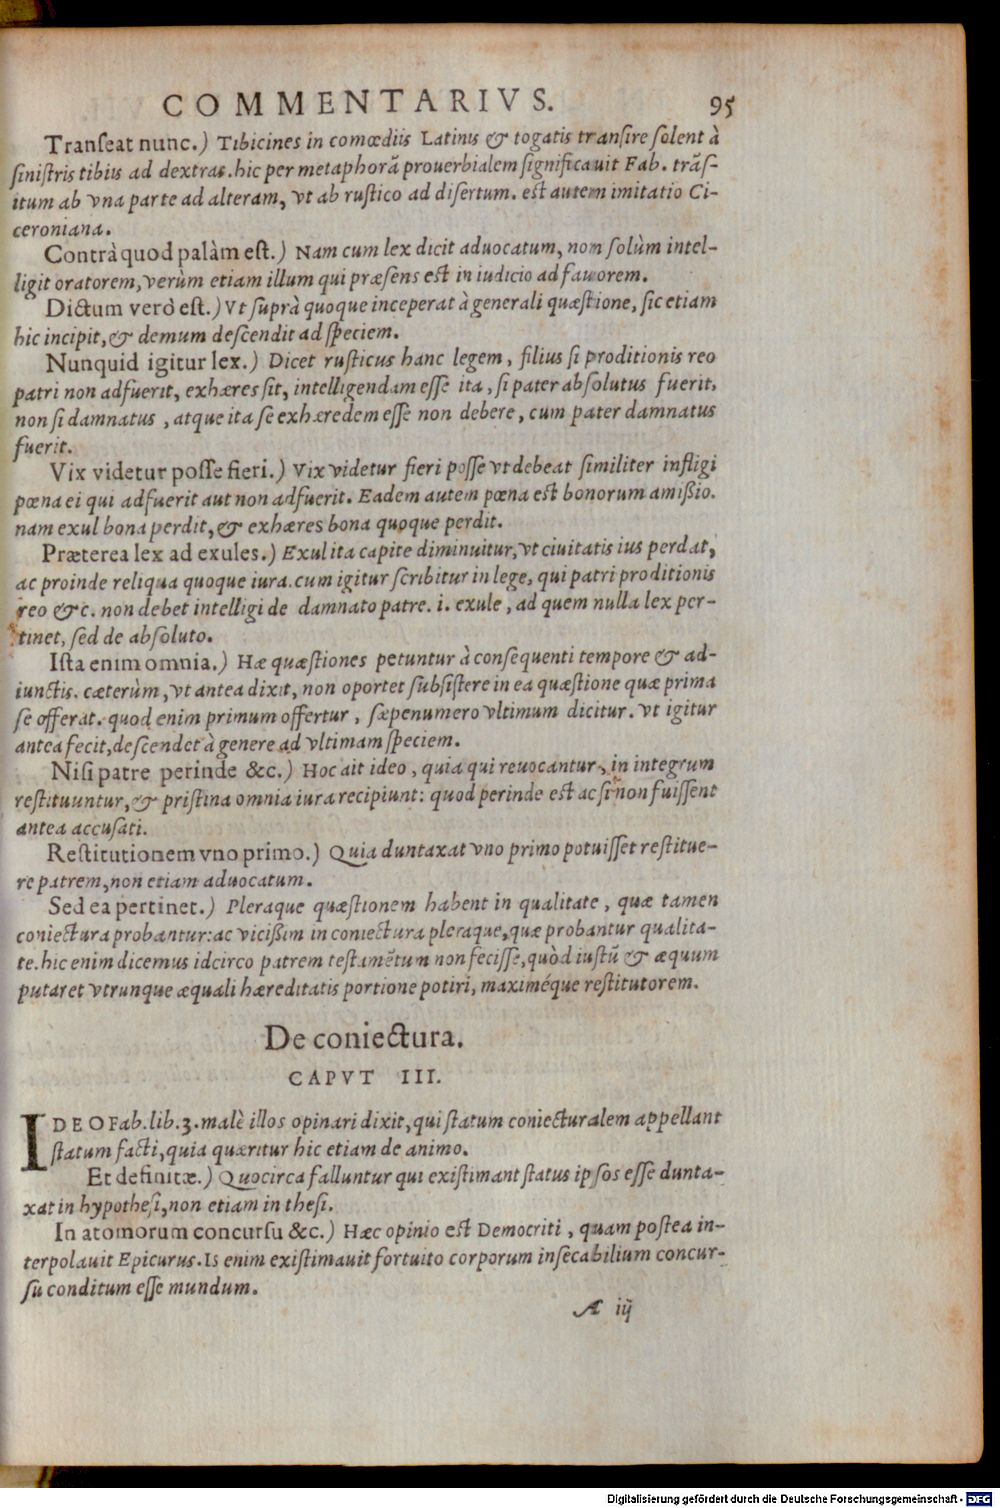 COMMENTARIVS. 95
Transeat nunc.) Tibicines in comœdiis Latinis & togatis transire solent à
sinistris tibiis ad dextras. hic per metaphorã prouerbialem significauit Fab. trãs-
itum ab vna parte ad alteram, vt ab rustico ad disertum. est autem imitatio Ci-
ceroniana.
Contrà quod palàm est.) Nam cum lex dicit aduocatum, non solùm intel-
ligit oratorem, verùm etiam illum qui præsens est in iudicio ad fauorem.
Dictum verò est.) Vt suprà quoque inceperat à generali quæstione, sic etiam
hic incipit, & demum descendit ad speciem.
Nunquid igitur lex.) Dicet rusticus hanc legem, filius si proditionis reo
patri non adfuerit, exhæres sit, intelligendam esse ita, si pater absolutus fuerit,
non si damnatus, atque ita se exhæredem esse non debere, cum pater damnatus
fuerit.
Vix videtur posse fieri.) Vix videtur fieri posse vt debeat similiter infligi
pœna ei qui adfuerit aut non adfuerit. Eadem autem pœna est bonorum amißio.
nam exul bona perdit, & exhæres bona quoque perdit.
Præterea lex ad exules.) Exul ita capite diminuitur, vt ciuitatis ius perdat,
ac proinde reliqua quoque iura. cum igitur scribitur in lege, qui patri proditionis
reo &c. non debet intelligi de damnato patre. i. exule, ad quem nulla lex per-
tinet, sed de absoluto.
Ista enim omnia.) Hæ quæstiones petuntur à consequenti tempore & ad-
iunctis. cæterùm, vt antea dixit, non oportet subsistere in ea quæstione quæ prima
se offerat. quod enim primum offertur, sæpenumero vltimum dicitur. vt igitur
antea fecit, descendet à genere ad vltimam speciem.
Nisi patre perinde &c.) Hoc ait ideo, quia qui reuocantur, in integrum
restituuntur, & pristina omnia iura recipiunt: quod perinde est ac si non fuissent
antea accusati.
Restitutionem vno primo.) Quia duntaxat vno primo potuisset restitue-
re patrem, non etiam aduocatum.
Sed ea pertinet.) Pleraque quæstionem habent in qualitate, quæ tamen
coniectura probantur: ac vicißim in coniectura pleraque, quæ probantur qualita-
te. hic enim dicemus idcirco patrem testamẽtum non fecisse, quòd iustũ & æquum
putaret vtrunque æquali hæreditatis portione potiri, maximéque restitutorem.
De coniectura.
CAPVT III.
IDEO Fab. lib. 3. malè illos opinari dixit, qui statum coniecturalem appellant
statum facti, quia quæritur hic etiam de animo.
Et definitæ.) Quocirca falluntur qui existimant status ipsos esse dunta-
xat in hypothesi, non etiam in thesi.
In atomorum concursu &c.) Hæc opinio est Democriti, quam postea in-
terpolauit Epicurus. Is enim existimauit fortuito corporum insecabilium concur-
su conditum esse mundum.
A iij
Digitalisierung gefördert durch die Deutsche Forschungsgemeinschaft - DFG